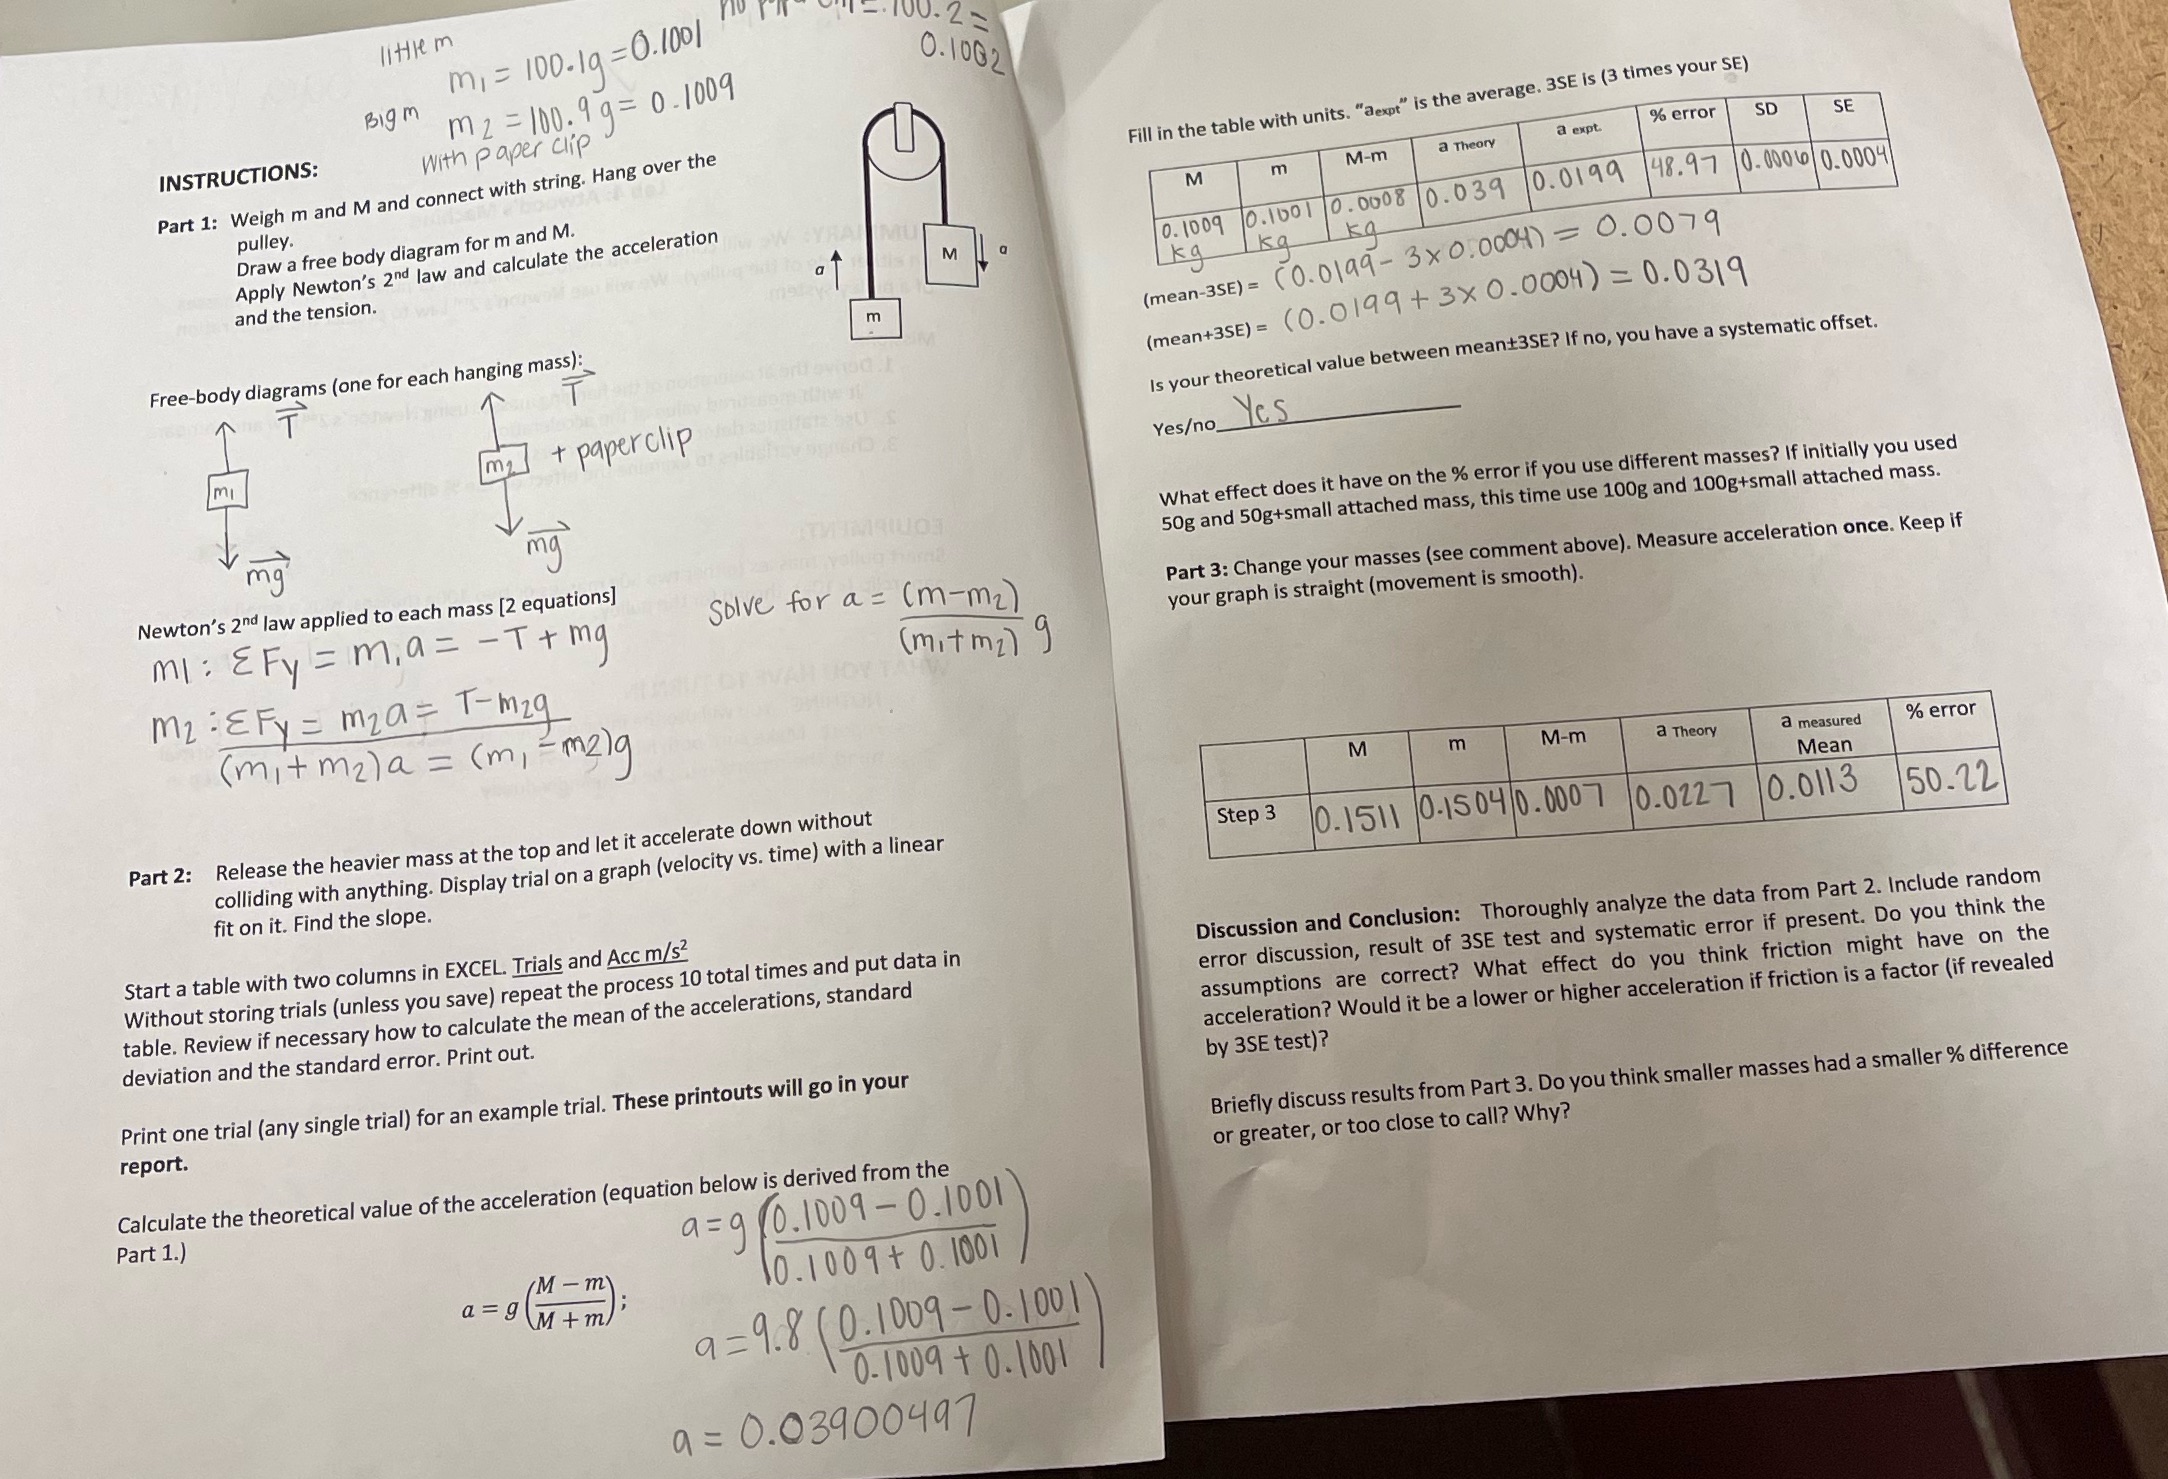 little m
m₁ = 100.1g = 0.1001
Big m
m₂ = 100.9g = 0.1009
with paper clip
100.2 =
0.1002
INSTRUCTIONS:
Part 1: Weigh m and M and connect with string. Hang over the
pulley.
Draw a free body diagram for m and M.
Apply Newton's 2nd law and calculate the acceleration
and the tension.
a
M
a
m
Free-body diagrams (one for each hanging mass):
T
T
m₁
m₂ + paperclip
mg
mg
Newton's 2nd law applied to each mass [2 equations]
m1: ΣFy = m₁a = -T + mg
m₂: ΣFy = m₂a = T-m₂g
(m₁+m₂)a = (m₁-m₂)g
Solve for a = (m-m₂)
(m₁+m₂) g
Part 2: Release the heavier mass at the top and let it accelerate down without
colliding with anything. Display trial on a graph (velocity vs. time) with a linear
fit on it. Find the slope.
Start a table with two columns in EXCEL. Trials and Acc m/s²
Without storing trials (unless you save) repeat the process 10 total times and put data in
table. Review if necessary how to calculate the mean of the accelerations, standard
deviation and the standard error. Print out.
Print one trial (any single trial) for an example trial. These printouts will go in your
report.
Calculate the theoretical value of the acceleration (equation below is derived from the
Part 1.)
a = g(M − m / M + m);
a = g(0.1009 - 0.1001 / 0.1009 + 0.1001)
a = 9.8(0.1009 - 0.1001 / 0.1009 + 0.1001)
a = 0.03900497
Fill in the table with units. "aexpt" is the average. 3SE is (3 times your SE)
M m M-m a Theory a expt. % error SD SE
0.1009 kg 0.1001 kg 0.0008 kg 0.039 0.0199 48.97 0.0006 0.0004
(mean-3SE) = (0.0199 - 3x0.0004) = 0.0079
(mean+3SE) = (0.0199 + 3x0.0004) = 0.0319
Is your theoretical value between mean±3SE? If no, you have a systematic offset.
Yes/no Yes
What effect does it have on the % error if you use different masses? If initially you used
50g and 50g+small attached mass, this time use 100g and 100g+small attached mass.
Part 3: Change your masses (see comment above). Measure acceleration once. Keep if
your graph is straight (movement is smooth).
M m M-m a Theory a measured Mean % error
Step 3 0.1511 0.1504 0.0007 0.0227 0.0113 50.22
Discussion and Conclusion: Thoroughly analyze the data from Part 2. Include random
error discussion, result of 3SE test and systematic error if present. Do you think the
assumptions are correct? What effect do you think friction might have on the
acceleration? Would it be a lower or higher acceleration if friction is a factor (if revealed
by 3SE test)?
Briefly discuss results from Part 3. Do you think smaller masses had a smaller % difference
or greater, or too close to call? Why?